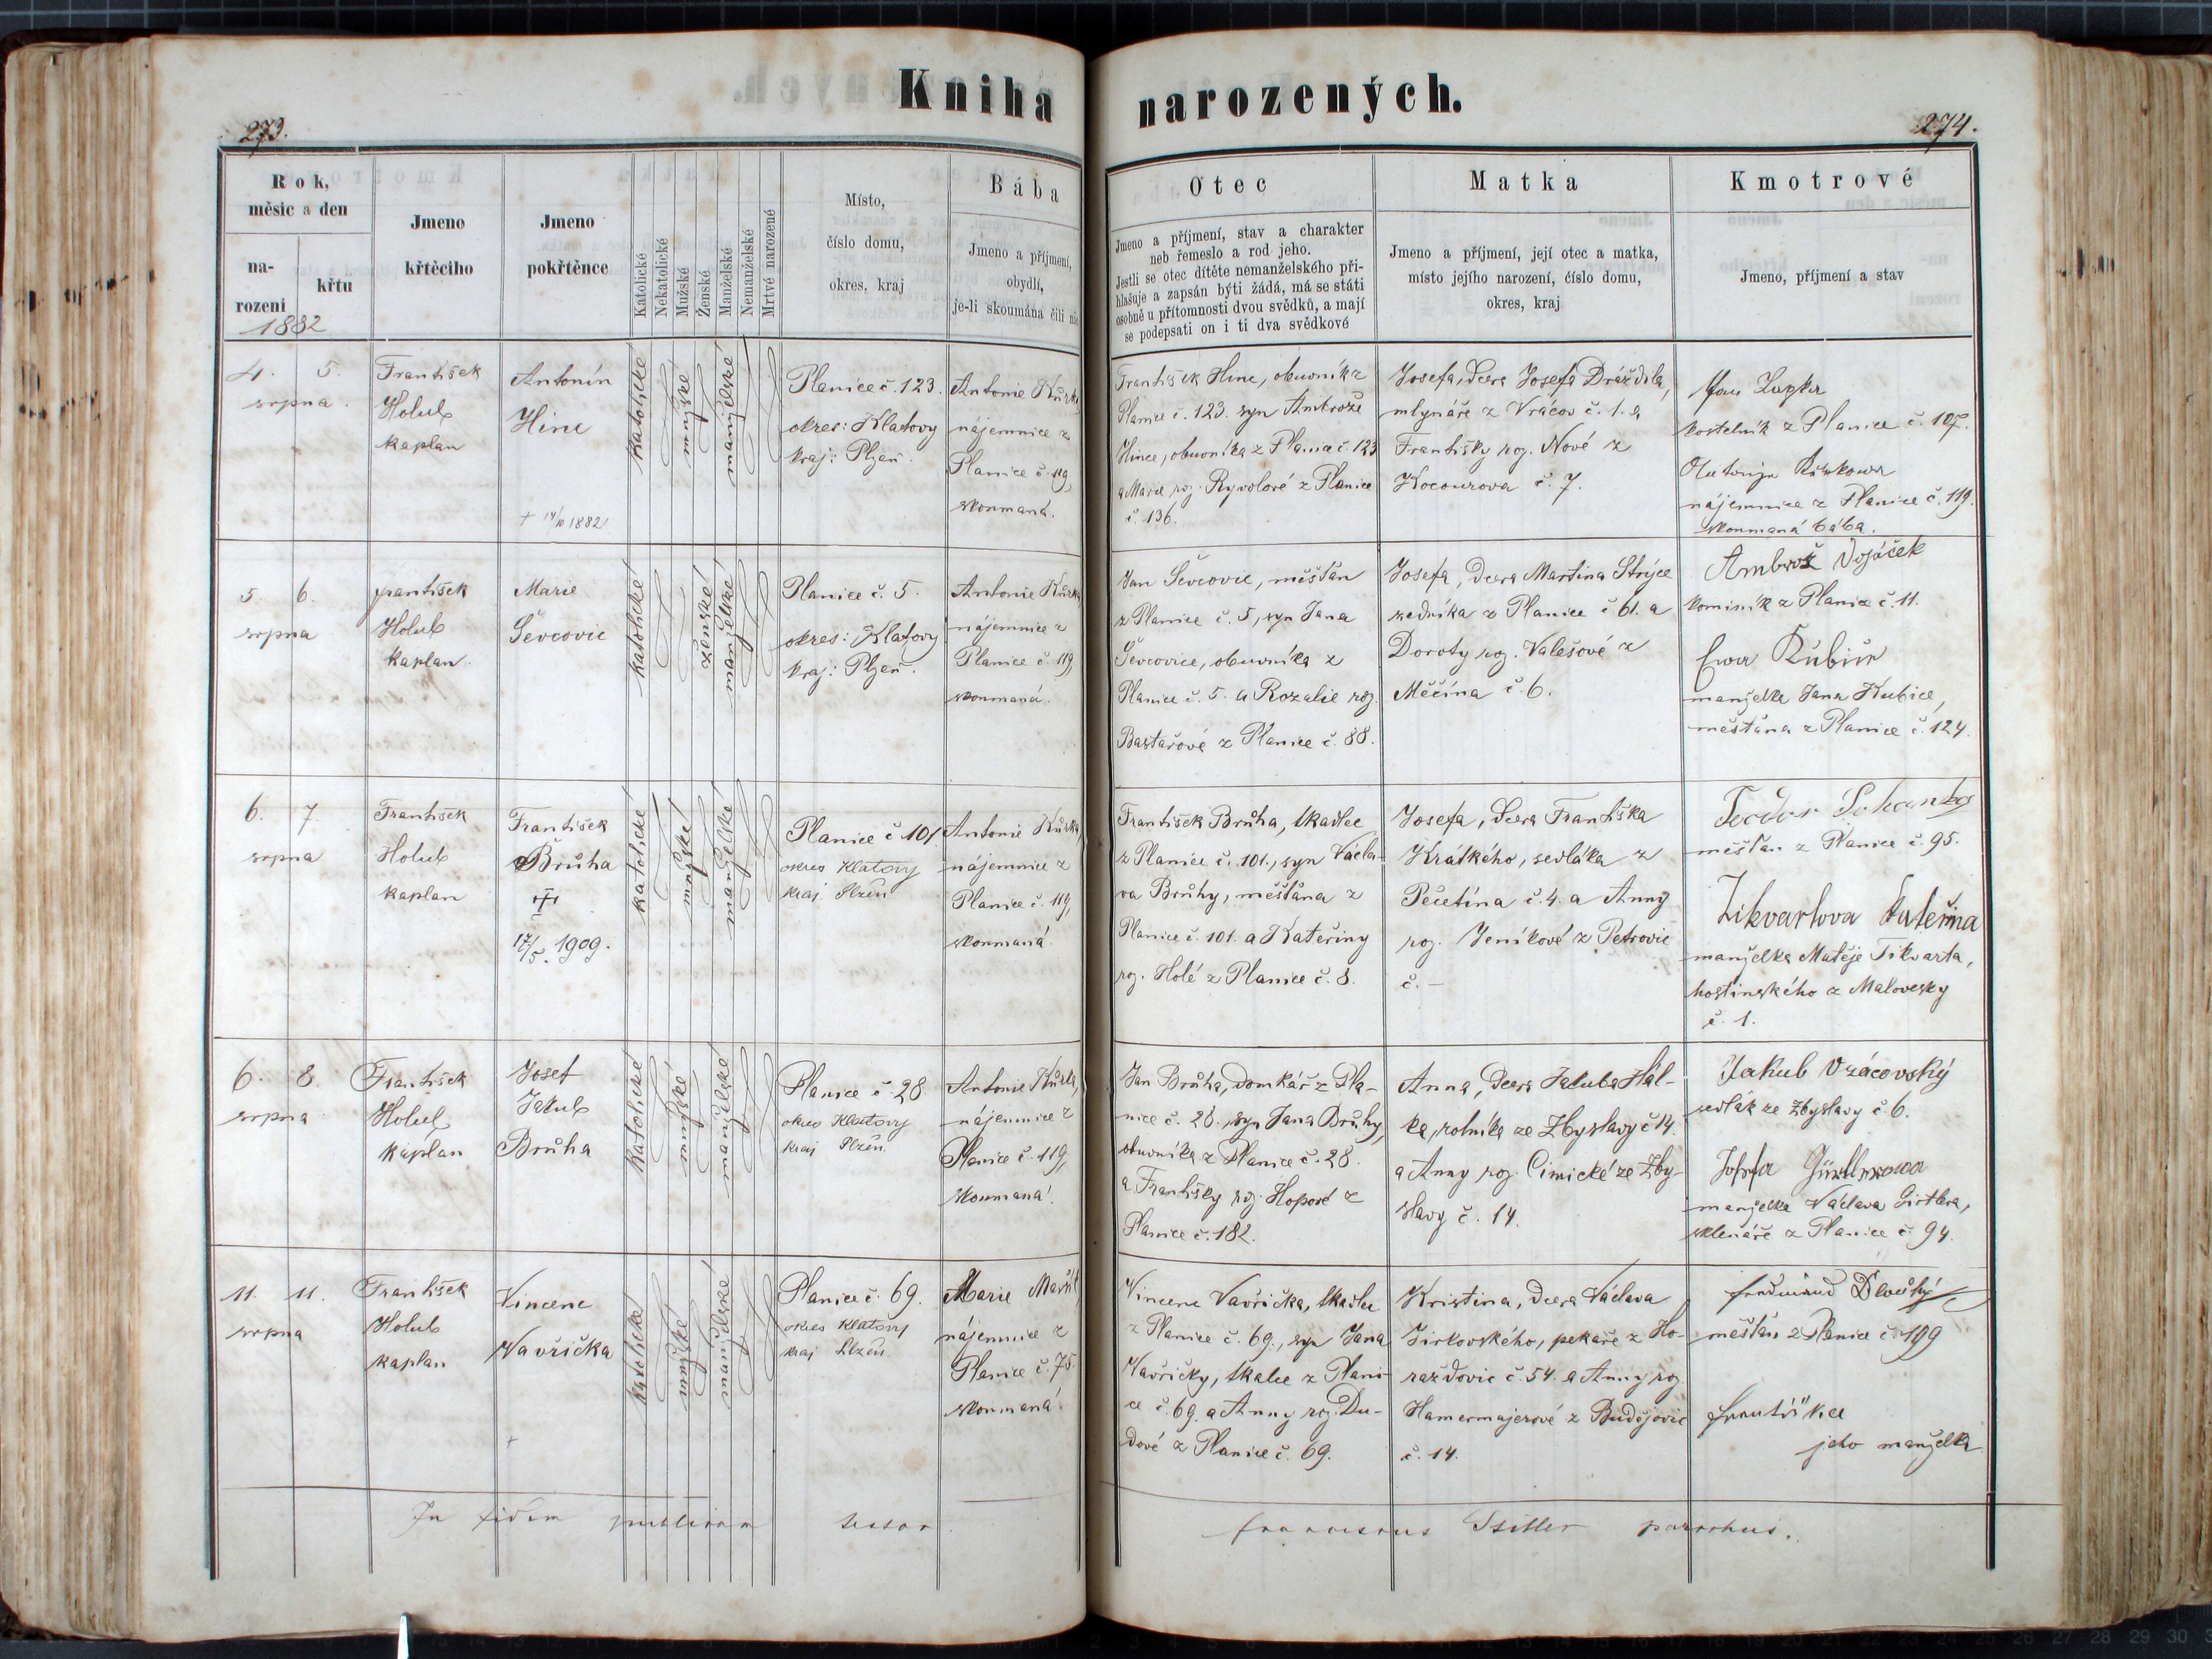 Kniha narozených.
273.
274.
Rok, měsic a den
na-
rozeni
křtu
1882
Jmeno křtěcího
Jmeno pokřtěnce
Katolické
Nekatolické
Mužské
Ženské
Manželské
Nemanželské
Mrtvé narozené
Místo,
číslo domu,
okres, kraj
Bába
Jmeno a příjmení,
obydlí,
je-li skoumána čili nic
Otec
Jmeno a příjmení, stav a charakter
neb řemeslo a rod jeho.
Jestli se otec dítěte nemanželského při-
hlašuje a zapsán býti žádá, má se státi
osobně u přítomnosti dvou svědků, a mají
se podepsati on i ti dva svědkové
Matka
Jmeno a příjmení, její otec a matka,
místo jejího narození, číslo domu,
okres, kraj
Kmotrové
Jmeno, příjmení a stav
4. 5.
srpna.
František
Holub
kaplan
Antonín
Hinc
+ 14/10 1882
katolické
mužské
manželské
Planice č. 123.
okres: Klatovy
kraj: Plzeň.
Antonie Kůrka,
nájemnice z
Planice č. 119,
skoumaná.
František Hinc, obuvník z
Planice č. 123. syn Ambrože
Hince, obuvníka z Planice č. 123
a Marie roz. Ryvolové z Planice
č. 136.
Josefa, dcera Josefa Dráždila,
mlynáře z Vrácov č. 1. a
Františky roz. Nové z
Kocourova č. 7.
Jan
kostelník z Planice č. 107.
nájemnice z Planice č. 119.
skoumaná bába.
5. 6.
srpna
František
Holub
kaplan.
Marie
Ševcovic
katolické
ženské
manželské
Planice č. 5.
okres: Klatovy
kraj: Plzeň.
Antonie Kůrka,
nájemnice z
Planice č. 119,
skoumaná.
Jan Ševcovic, měšťan
z Planice č. 5, syn Jana
Ševcovice, obuvníka z
Planice č. 5. a Rozalie roz.
Bastařové z Planice č. 88.
Josefa, dcera Martina Strýce
zedníka z Planice č. 61. a
Doroty roz. Valešové z
Měčína č. 6.
Ambrož Vojáček
kominík z Planice č. 11.
manželka Jana Kubice,
měšťana z Planice č. 124.
6. 7.
srpna
František
Holub
kaplan
František
Bruha
17/5. 1909.
katolické
mužské
manželské
Planice č. 101.
okres Klatovy
kraj Plzeň
Antonie Kůrka,
nájemnice z
Planice č. 119,
skoumaná.
František Brůha, tkadlec
z Planice č. 101., syn Václa-
va Brůhy, měšťana z
Planice č. 101. a Kateřiny
roz. Holé z Planice č. 8.
Josefa, dcera Františka
Krátkého, sedláka z
Pečetína č. 4. a Anny
roz. Jeníkové z Petrovic
č. –
Teodor
měšťan z Planice č. 95.
Kateřina
manželka Matěje Tikvarta,
hostinského z Malovesky
č. 1.
6. 8.
srpna
František
Holub
kaplan
Josef
Jakub
Brůha
katolické
mužské
manželské
Planice č. 28.
okres Klatovy
kraj Plzeň
Antonie Kůrka,
nájemnice z
Planice č. 119,
skoumaná.
Jan Brůha, domkář z Pla-
nice č. 28., syn Jana Brůhy,
obuvníka z Planice č. 28.
a Františky roz. Hopové z
Planice č. 182.
Anna, dcera Jakuba Hál-
ka, rolníka ze Zbyslavy č. 14.
a Anny roz. Cimické ze Zby-
slavy č. 14.
Jakub Vzácovský
sedlák ze Zbyslavy č. 6.
manželka Václava Girtlera,
sklenáře z Planice č. 94.
11. 11.
srpna
František
Holub
kaplan
Vincenc
Vavřička
katolické
mužské
manželské
Planice č. 69.
okres Klatovy
kraj Plzeň
Marie
nájemnice z
Planice č. 75.
skoumaná.
Vincenc Vavřička, tkadlec
z Planice č. 69., syn Jana
Vavřičky, tkalce z Plani-
ce č. 69. a Anny roz. Du-
dové z Planice č. 69.
Kristina, dcera Václava
Jirkovského, pekaře z Ho-
ražďovic č. 54. a Anny roz.
Hamermajerové z Budějovic
č. 14.
Ferdinand Dlouhý
měšťan z Planice č. 109
jeho manželka
In fidem publicam testor
Franciscus parochus.